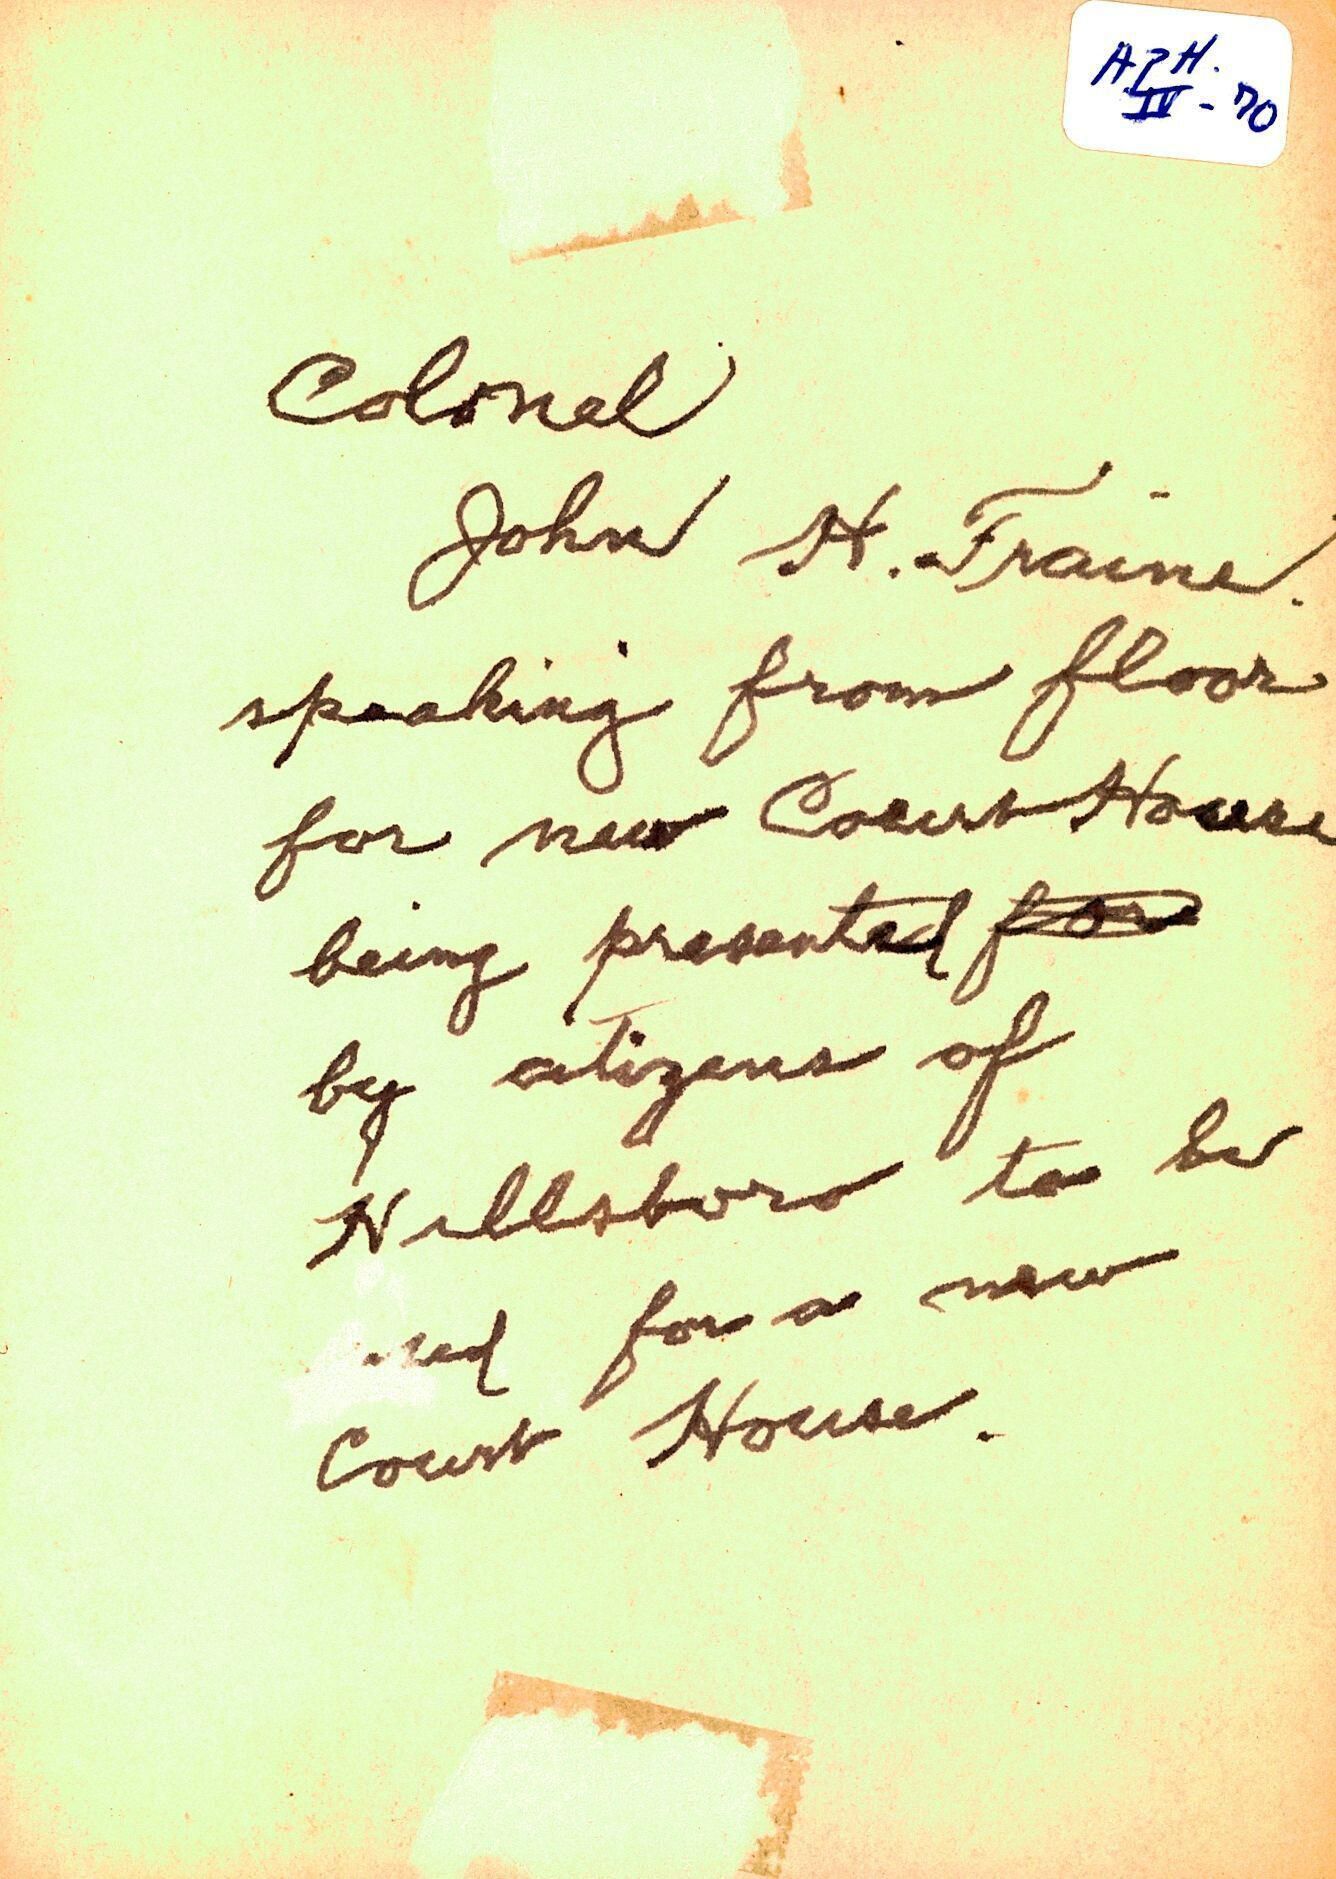 A.P.H.
IV - 70
Colonel
John H. Fraine.
speaking from floor
for new Court House
being presented
by citizens of
Hillsboro to be
for a new
Court House.